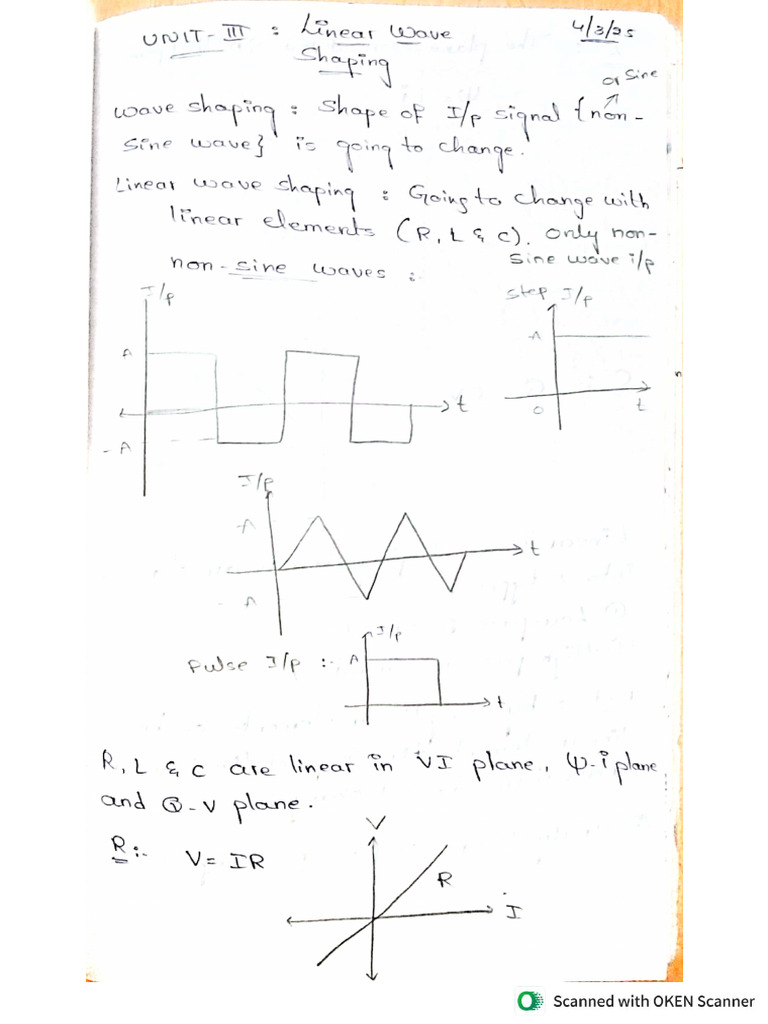 UNIT-III : Linear Wave 4/3/25
Shaping
or Sine
Wave shaping : Shape of I/p signal {non-
Sine wave} is going to change.
Linear wave shaping : Going to change with
linear elements (R, L & C). Only non-
Sine wave i/p
non-sine waves :
I/p
A
- A
t
Step I/p
A
0
t
I/p
A
- A
t
Pulse I/p :-
I/p
A
t
R, L & C are linear in VI plane, ψ-i plane
and Q-V plane.
R :- V = IR
V
R
I
Scanned with OKEN Scanner